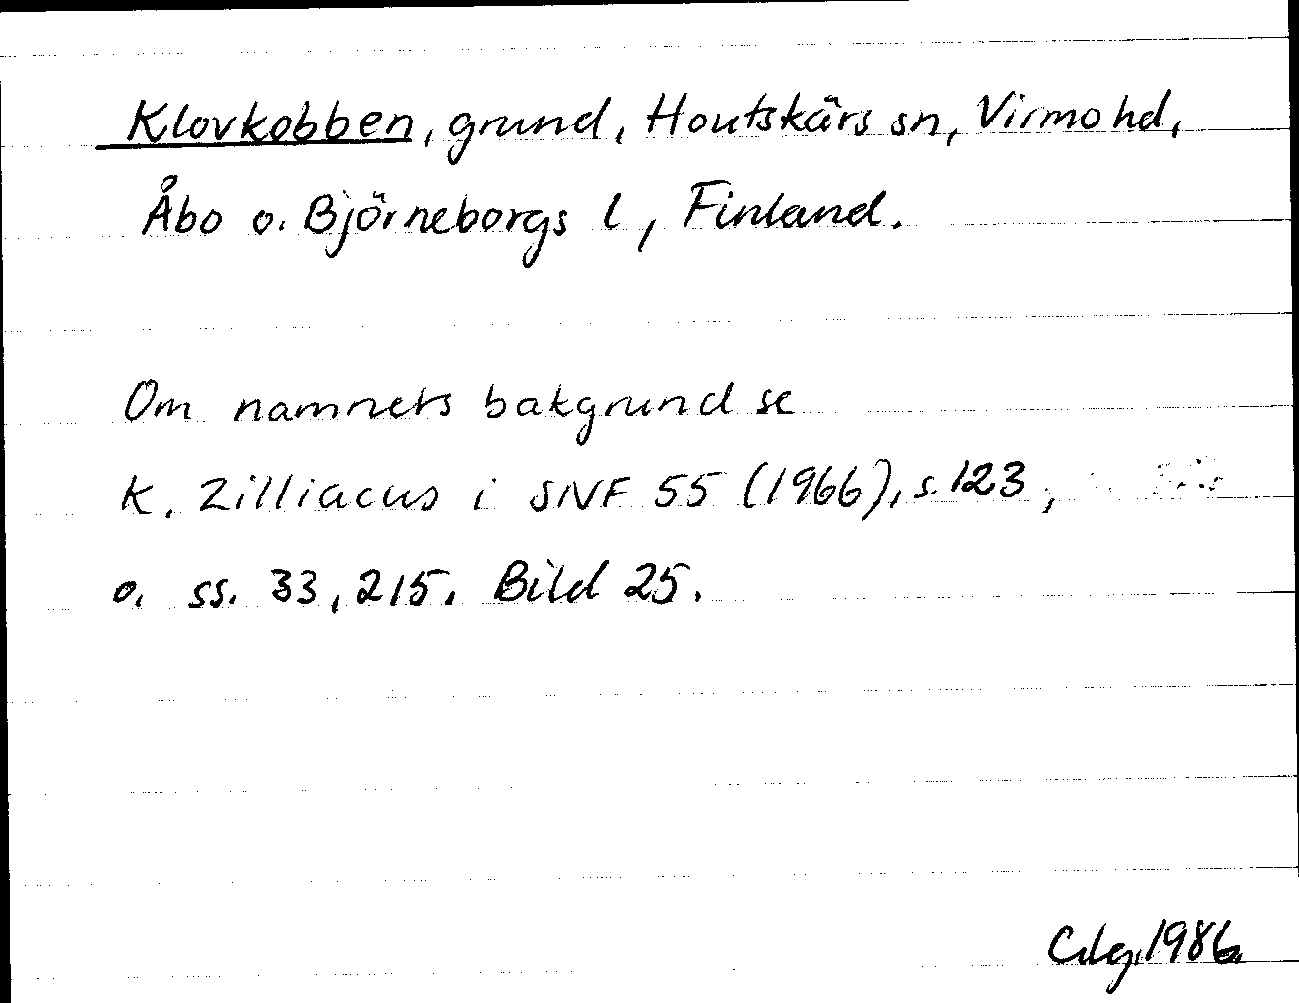 Klovkobben, grund, Houtskärs sn, Virmo hd,
Åbo o. Björneborgs l, Finland.
Om namnets bakgrund se
K. Zilliacus i SNF 55 (1966), s. 123,
o. ss. 33, 215. Bild 25.
1986